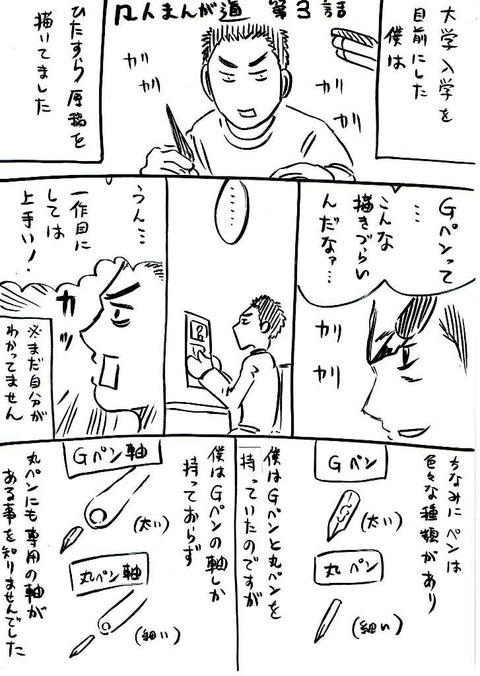 凡人まんが道 第3話
大学入学を
目前にした
僕は
カリ
カリ
カリ
カリ
ひたすら原稿を
描いてました
Gペンって
…
こんな
描きづらい
んだなァ…
カリ
カリ
……
うん…
一作目に
しては
上手い！
カッ
※まだ自分が
わかってません
ちなみにペンは
色々な種類があり
Gペン
(太い)
丸ペン
(細い)
僕はGペンと丸ペンを
持っていたのですが
僕はGペンの軸しか
持っておらず
Gペン軸
(太い)
丸ペン軸
(細い)
丸ペンにも専用の軸が
ある事を知りませんでした